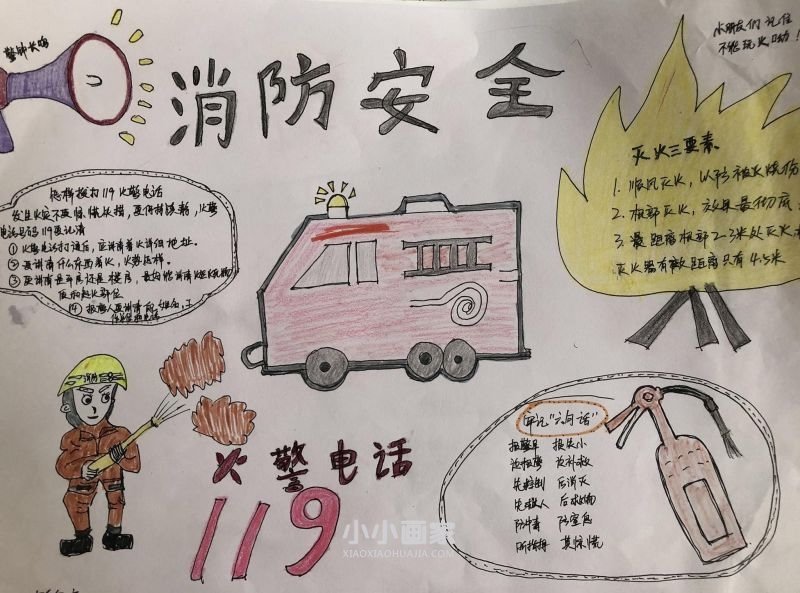 警钟长鸣
消防安全
小朋友们 记住
不能玩火哟！
怎样拨打119火警电话
电话号码119要记清
①火警电话打通后，应讲清着火详细地址。
②要讲清什么东西着火，火势怎样。
③应讲清是平房还是楼房，最好能讲清
起火部位
④报警人要讲清
灭火三要素
1. 顺风灭火，以防被火烧伤
2. 根部灭火，效果最彻底
3. 最距离根部2-3米处灭火
灭火器有效距离只有4.5米
消防
火警电话
119
牢记“六句话”
报警早 损失小
边报警 边扑救
先控制 后消灭
先救人 后救物
防中毒 防窒息
听指挥 莫惊慌
小小画家
XIAOXIAOHUAJIA.COM